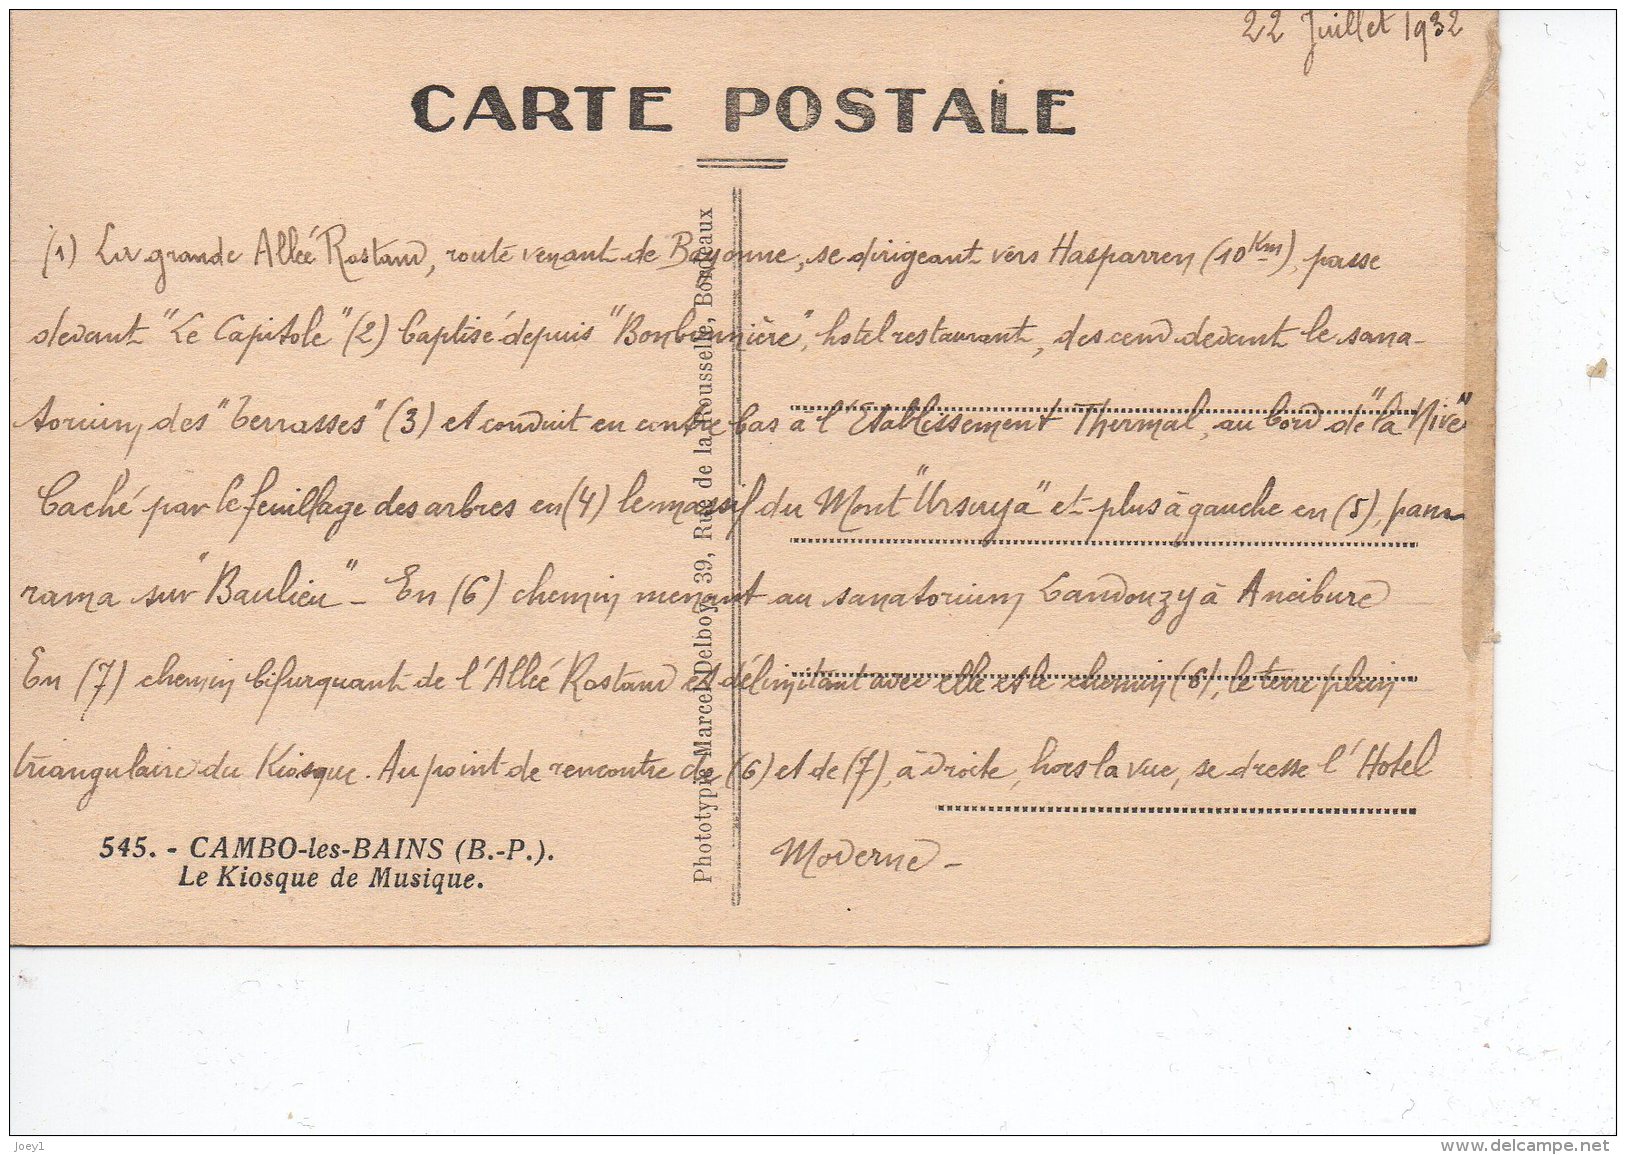 22 Juillet 1932
CARTE POSTALE
(1) La grande Allée Rostand, route venant de Bayonne, se dirigeant vers Hasparren (10 Km), passe
devant "Le Capitole" (2) baptisé depuis "Bonbonnière", hotel restaurant, descend devant le sana-
torium des "Terrasses" (3) et conduit en contre bas à l'Etablissement Thermal, au bord de "la Nive"
Caché par le feuillage des arbres en (4) le massif du Mont "Ursuya" et plus à gauche en (5), pano-
rama sur "Baulieu" - En (6) chemin menant au sanatorium Landouzy à Ancibure
En (7) chemin bifurquant de l'Allée Rostand et délimitant avec elle et le chemin (6), le terre plein
triangulaire du Kiosque. Au point de rencontre de (6) et de (7), à droite, hors la vue, se dresse l'Hotel
Moderne -
545. - CAMBO-les-BAINS (B.-P.).
Le Kiosque de Musique.
Phototypie Marcel Delboy, 39, Rue de la Rousselle, Bordeaux
joey1
www.delcampe.net